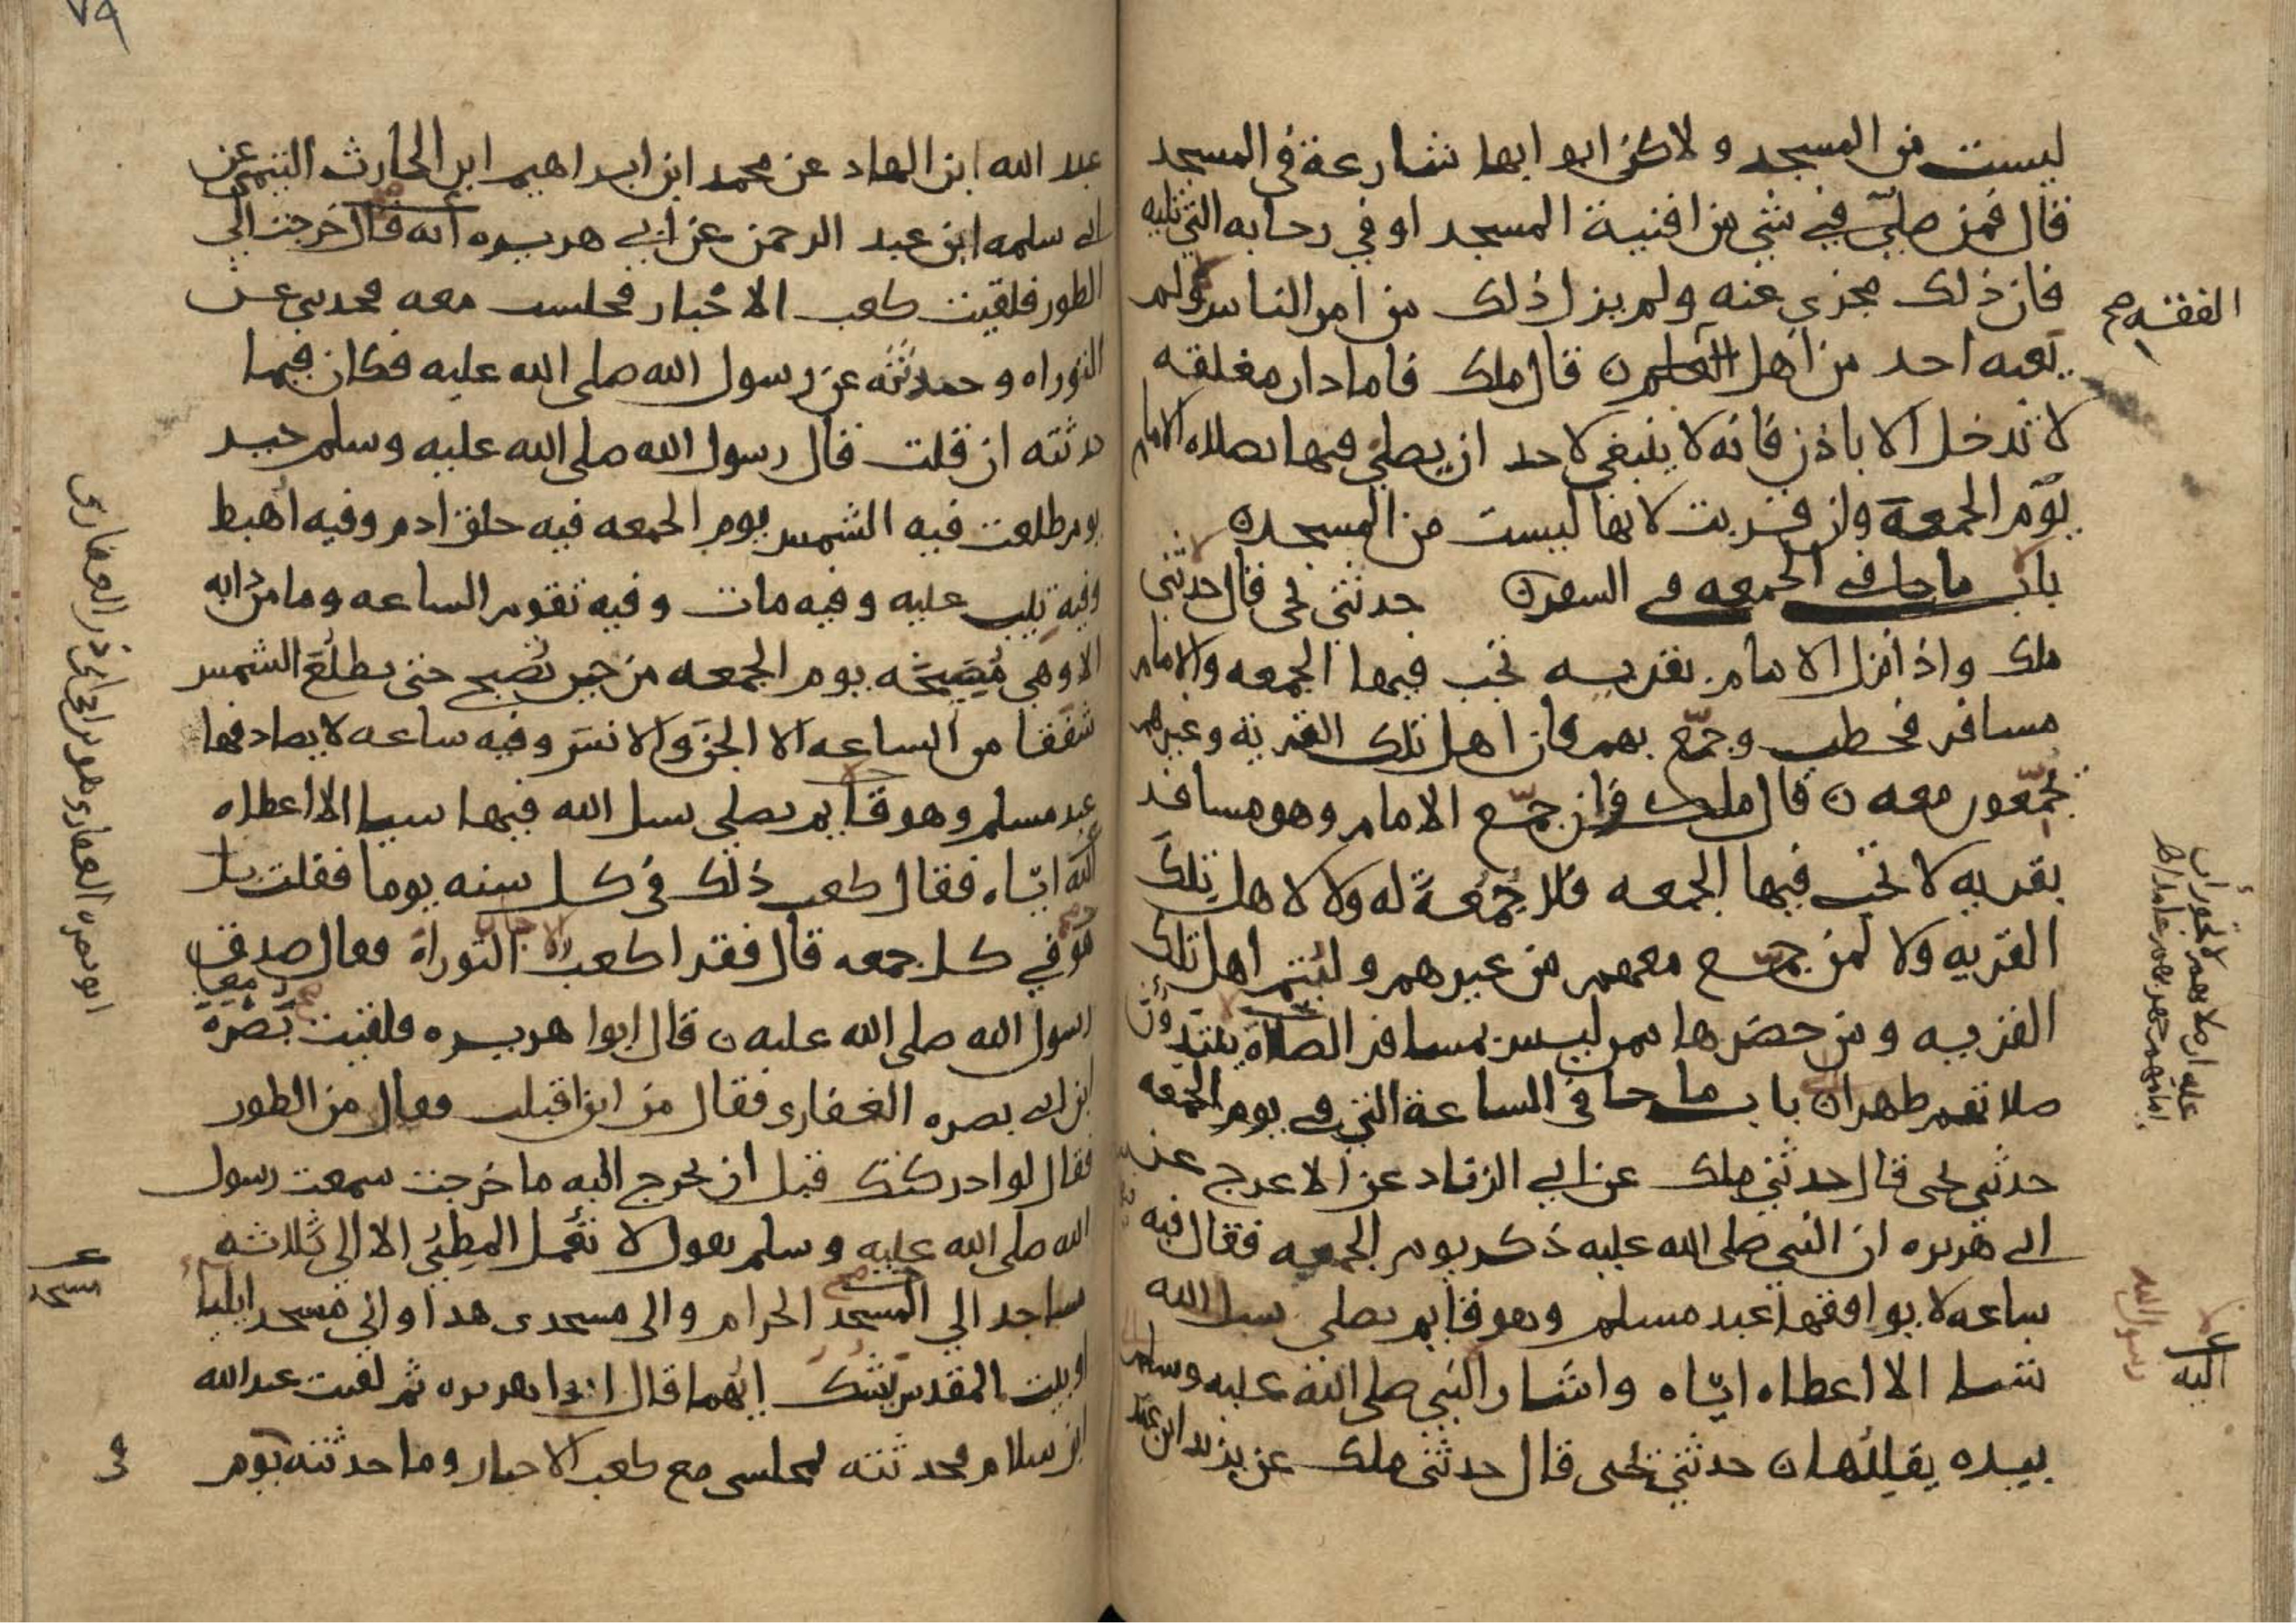 ليست من المسجد ولاكن ابوابها شارعة في المسجد
قال فمن صلى في شي من افنية المسجد او في رحابه التي تليه
فان ذلك مجزي عنه ولم يزل ذلك من امر الناس ولم
يعبه احد من اهل العلم ن قال ملك فاما دار مغلقه
لا تدخل الا باذن فانه لا ينبغي لاحد ان يصلي فيها بصلاه الامام
يوم الجمعة وان قربت لانها ليست من المسجد ن
باب ما جا في الجمعه في السفر ن حدثني يحيى قال حدثني
ملك واذا نزل الامام بقريه تجب فيها الجمعه والامام
مسافر فخطب وجمع بهم فان اهل تلك القرية وغيرهم
يجمعون معه ن قال ملك وان جمع الامام وهو مسافر
بقريه لا تجب فيها الجمعه فلا جمعة له ولا لاهل تلك
القريه ولا لمن جمع معهم من غيرهم وليتم اهل تلك
القريه ومن حضرها ممن ليس بمسافر الصلاة
باب ما جا في الساعة التي في يوم الجمعه
حدثني يحيى قال حدثني ملك عن ابي الزناد عن الاعرج عن
ابي هريره ان النبي صلى الله عليه ذكر يوم الجمعه فقال فيه
ساعه لا يوافقها عبد مسلم وهو قايم يصلي يسل الله
شيا الا اعطاه اياه واشار النبي صلى الله عليه وسلم
بيده يقللها ن حدثني يحيى قال حدثني ملك عن يزيد ابن عبد
الفقه صح
اليه
رسول الله
٧٩
عبد الله ابن الهاد عن محمد ابن ابراهيم ابن الحارث التيمي عن
ابي سلمه ابن عبد الرحمن عن ابي هريره انه قال خرجت الى
الطور فلقيت كعب الاحبار فجلست معه فحدثني عن
التوراه وحدثته عن رسول الله صلى الله عليه فكان فيما
حدثته ان قلت قال رسول الله صلى الله عليه وسلم خير
يوم طلعت فيه الشمس يوم الجمعه فيه خلق ادم وفيه اهبط
وفيه تيب عليه وفيه مات وفيه تقوم الساعه وما من دابه
الا وهي مصيخه يوم الجمعه من حين تصبح حتى تطلع الشمس
شفقا من الساعه الا الجن والانس وفيه ساعه لا يصادفها
عبد مسلم وهو قايم يصلي يسل الله فيها شيا الا اعطاه
الله اياه فقال كعب ذلك في كل سنه يوما فقلت بل
هو في كل جمعه قال فقرا كعب التوراة فقال صدق
رسول الله صلى الله عليه ن قال ابوا هريره فلقيت بصرة
ابن ابي بصره الغفارى فقال من اين اقبلت فقال من الطور
فقال لو ادركتك قبل ان تخرج اليه ما خرجت سمعت رسول
الله صلى الله عليه وسلم يقول لا تعمل المطي الا الى ثلاثه
مساجد الى المسجد الحرام والى مسجدى هدا والى مسجد ايليا
او بيت المقدس يشك ايهما قال ابوا هريره ثم لقيت عبد الله
ابن سلام فحدثته بمجلسي مع كعب الاحبار وما حدثته يوم